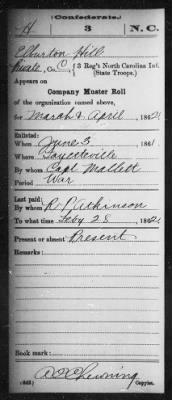 (Confederate.)
H 3 N.C.
Elburton Hill
Private, Co. C, 3 Reg't North Carolina Inf.
(State Troops.)
Appears on
Company Muster Roll
of the organization named above,
for March & April, 1862.
Enlisted:
When June 3, 1861.
Where Fayetteville
By whom Capt Mallett
Period War
Last paid:
By whom R. P. Atkinson
To what time Feby 28, 1862.
Present or absent Present
Remarks:
Book mark:
Chewning
(642) Copyist.